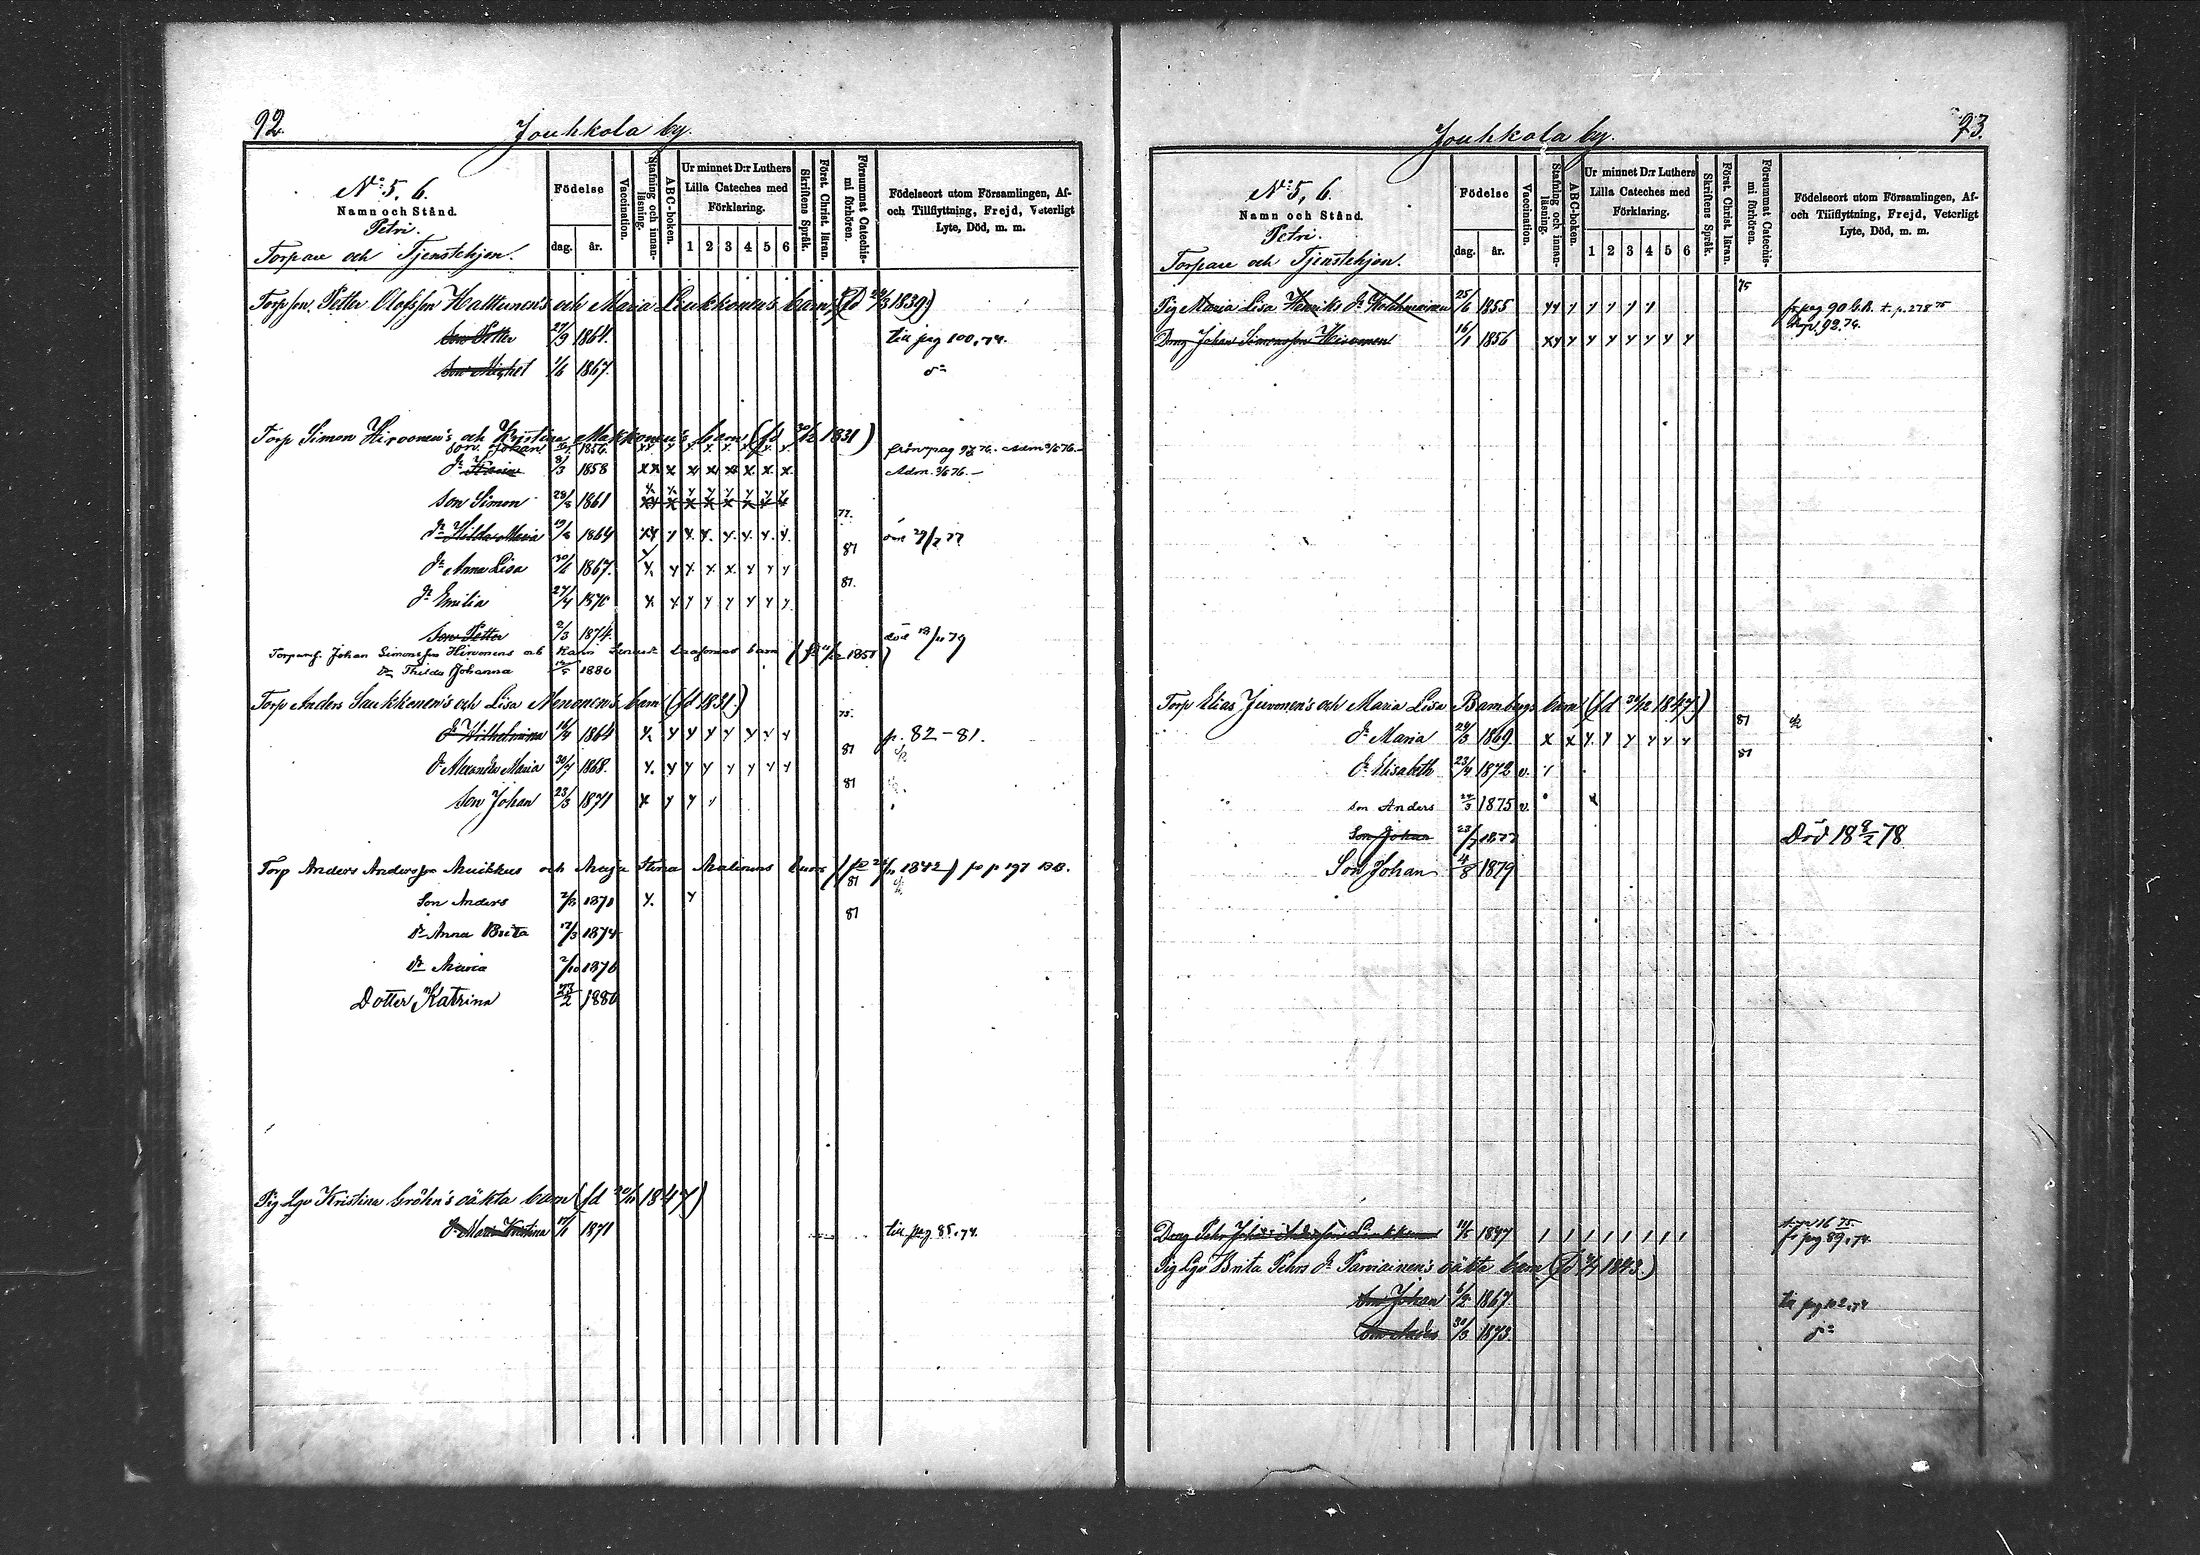 92.
Jouhkola by.
No: 5, 6.
Namn och Stånd.
Petri.
Torpare och Tjenstehjon.
Födelse
dag. år.
Vaccination.
Stafning och innanläsning.
ABC-boken.
Ur minnet D:r Luthers Lilla Cateches med Förklaring.
1 2 3 4 5 6
Skriftens Språk.
Först. Christ. läran.
Försummat Catechismi förhören.
Födelseort utom Församlingen, Af- och Tillflyttning, Frejd, Veterligt Lyte, Död, m. m.
Torpson Petter Olofsson Halttunen's och Maria Leukkonen's barn (fd 1839)
son Petter 27/9 1864. till pag 100, 74.
son Michel 1/6 1867. d:o
Torp Simon Hirvonen's och Kristina Makkonen's barn (fd 30/12 1831)
son Johan 1856. från pag 93 76. Adm 76.
d:r 8/3 1858 Adm. 76.
son Simon 1861
77.
d:r Hilda Maria 1864
81
d:r Anna Lisa 1867.
81.
d:r Emilia 27/4 1870
son Petter 2/3 1874. död 11 79
Johan Simonsson Hirvonens och Karin barn 1851)
d:r Thilda Johanna 1880
Torp Anders Saukkonen's och Lisa Nenonen's barn (fd 1831.)
75.
d:r Wilhelmina 16/4 1864 p. 82-81.
81
d:r Alexandra Maria 30/4 1868.
81
son Johan 23/3 1871
Torp Anders Andersson Muikkus och Maja Stina Malinens barn (fd 1842) fr p 197
81
son Anders 1871
81
d:r Anna Brita 17/3 1874
d:r Maria 2/10 1876
Dotter Katrina 23/2 1880
Pig Lgv Kristina Gröhn's oäkta barn (fd 1847)
d:r Maria Kristina 1871 till pag 85, 74.
93.
Jouhkola by.
No: 5, 6.
Namn och Stånd.
Petri.
Torpare och Tjenstehjon.
Födelse
dag. år.
Vaccination.
Stafning och innanläsning.
ABC-boken.
Ur minnet D:r Luthers Lilla Cateches med Förklaring.
1 2 3 4 5 6
Skriftens Språk.
Först. Christ. läran.
Försummat Catechismi förhören.
Födelseort utom Församlingen, Af- och Tillflyttning, Frejd, Veterligt Lyte, Död, m. m.
75
Pig Maria Lisa Henriks d:r Kolehmainen 25/6 1855 fr pag 90 t. p. 278 75
Dreng Johan Simonsson Hirvonen 16/1 1856 92. 76.
Torp Elias Juvonen's och Maria Lisa Bambergs barn (fd 12 1847)
81
d:r Maria 24/3 1869
81
d:r Elisabeth 23/4 1872 v.
son Anders 24/3 1875 v.
son Johan 1877 Död 18 9/2 78
Son Johan 4/8 1879
Dreng Pehr Johan Andersson 1847 fr pag 89, 74.
Pig Lgv Brita Pehrs d:r Parviainen's oäkta barn (fd 1843.)
son Johan 6/2 1867 till pag 102, 74
son Anders 30/3 1873. d:o